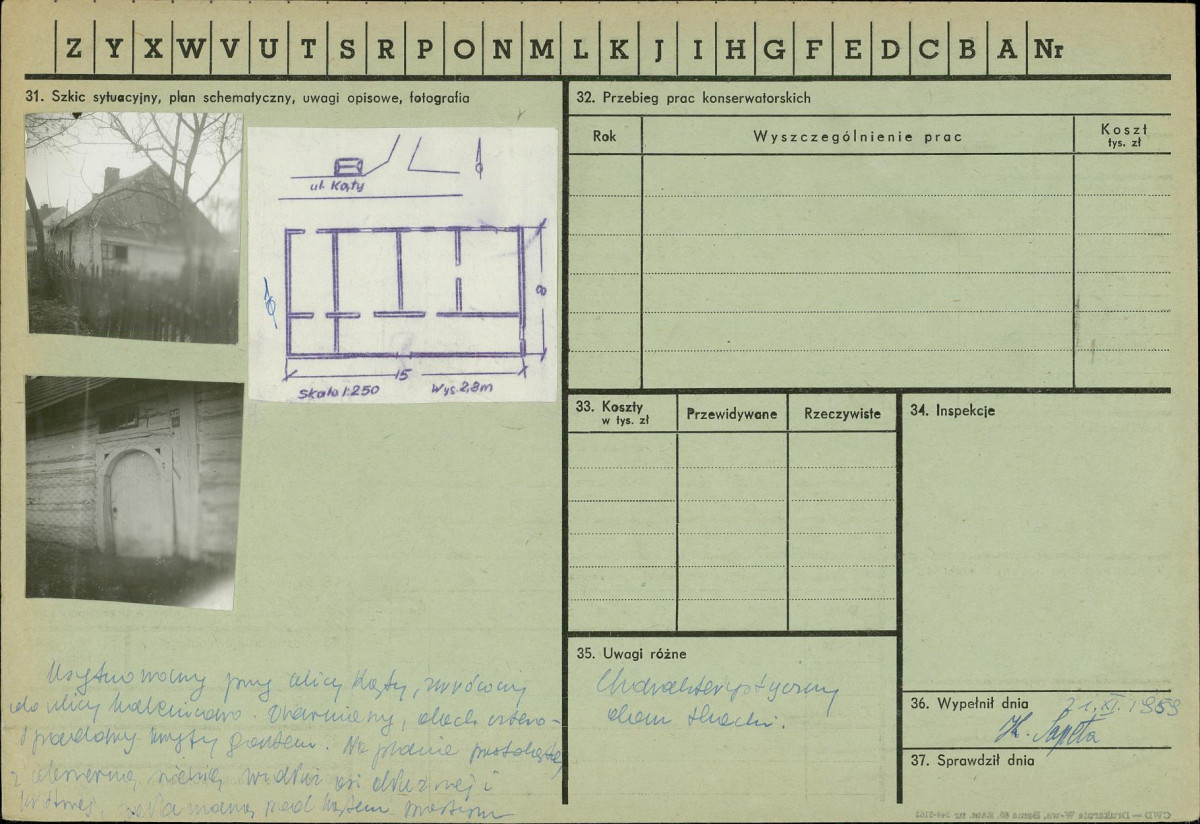 Z Y X W V U T S R P O N M L K J I H G F E D C B A Nr
31. Szkic sytuacyjny, plan schematyczny, uwagi opisowe, fotografia
ul. Kąty
8
15
Skala 1:250 Wys. 2,8m
Usytuowany przy ulicy Kąty, zwrócony
do ulicy kalenicowo. dach cztero-
spadowy kryty gontem. Na planie prostokąta
z sienią wzdłuż osi
pod kątem prostym
32. Przebieg prac konserwatorskich
Rok Wyszczególnienie prac Koszt
tys. zł
33. Koszty
w tys. zł
Przewidywane Rzeczywiste
34. Inspekcje
35. Uwagi różne
Charakterystyczny
dom tkacki.
36. Wypełnił dnia 21.XI.1959
H. Sapeta
37. Sprawdził dnia